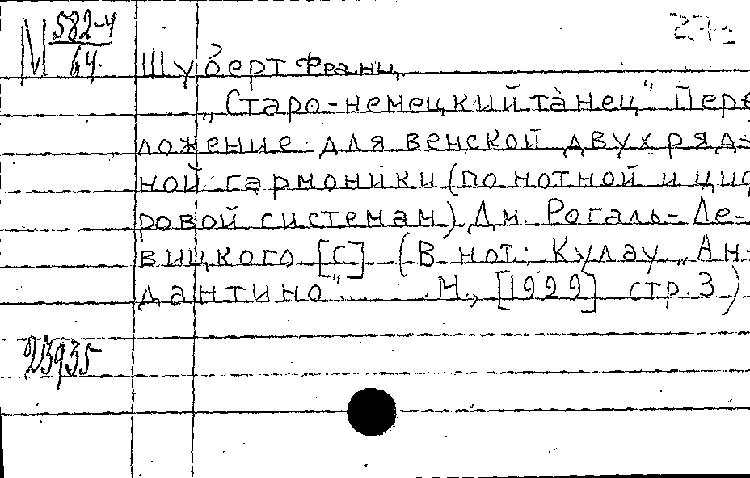 М 582-4
64
27
Шуберт Франц
„Старо-немецкий танец" Пере
ложение для венской двухряд-
ной гармоники (по нотной и циф
ровой системам) Дм. Рогаль-Ле-
вицкого [С] (В нот: Кулау „Ан-
дантино" М., [1929] стр. 3)
23935